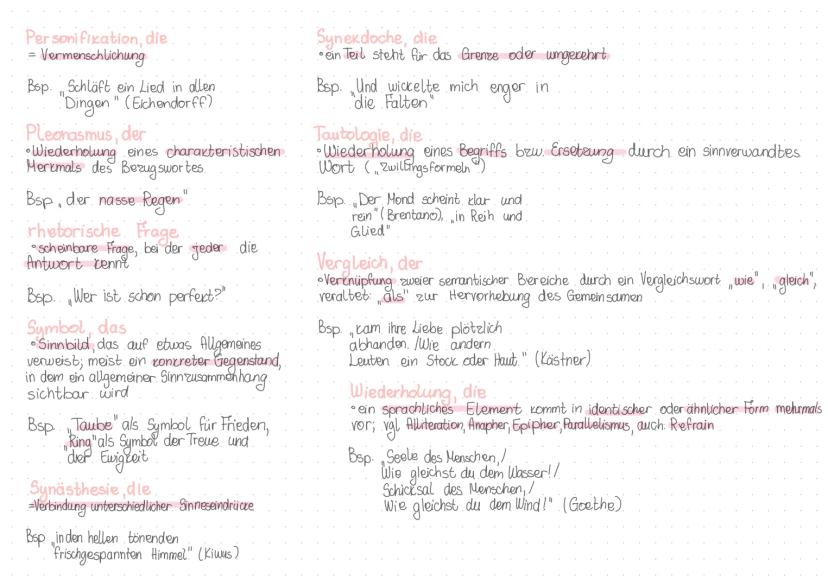 Personifikation, die
= Vermenschlichung
Bsp. „Schläft ein Lied in allen
Dingen" (Eichendorff)
Pleonasmus, der
• Wiederholung eines charakteristischen
Merkmals des Bezugswortes
Bsp. „der nasse Regen"
rhetorische Frage
• scheinbare Frage, bei der jeder die
Antwort kennt
Bsp. „Wer ist schon perfekt?"
Symbol, das
• Sinnbild, das auf etwas Allgemeines
verweist; meist ein konkreter Gegenstand,
in dem ein allgemeiner Sinnzusammenhang
sichtbar wird
Bsp. „Taube" als Symbol für Frieden,
„Ring" als Symbol der Treue und
der Ewigkeit
Synästhesie, die
= Verbindung unterschiedlicher Sinneseindrücke
Bsp „in den hellen tönenden
frischgespannten Himmel" (Kiwus)
Synekdoche, die
• ein Teil steht für das Grenze oder umgekehrt
Bsp. „Und wickelte mich enger in
die Falten"
Tautologie, die
• Wiederholung eines Begriffs bzw. Ersetzung durch ein sinnverwandtes
Wort („Zwillingsformeln")
Bsp. „Der Mond scheint klar und
rein" (Brentano), „in Reih und
Glied"
Vergleich, der
• Verknüpfung zweier semantischer Bereiche durch ein Vergleichswort „wie", „gleich",
veraltet: „als" zur Hervorhebung des Gemeinsamen
Bsp. „kam ihre Liebe plötzlich
abhanden. /Wie andern
Leuten ein Stock oder Haut." (Kästner)
Wiederholung, die
• ein sprachliches Element kommt in identischer oder ähnlicher Form mehrmals
vor; vgl. Alliteration, Anapher, Epipher, Parallelismus, auch: Refrain
Bsp. „Seele des Menschen, /
Wie gleichst du dem Wasser! /
Schicksal des Menschen, /
Wie gleichst du dem Wind!" (Goethe)